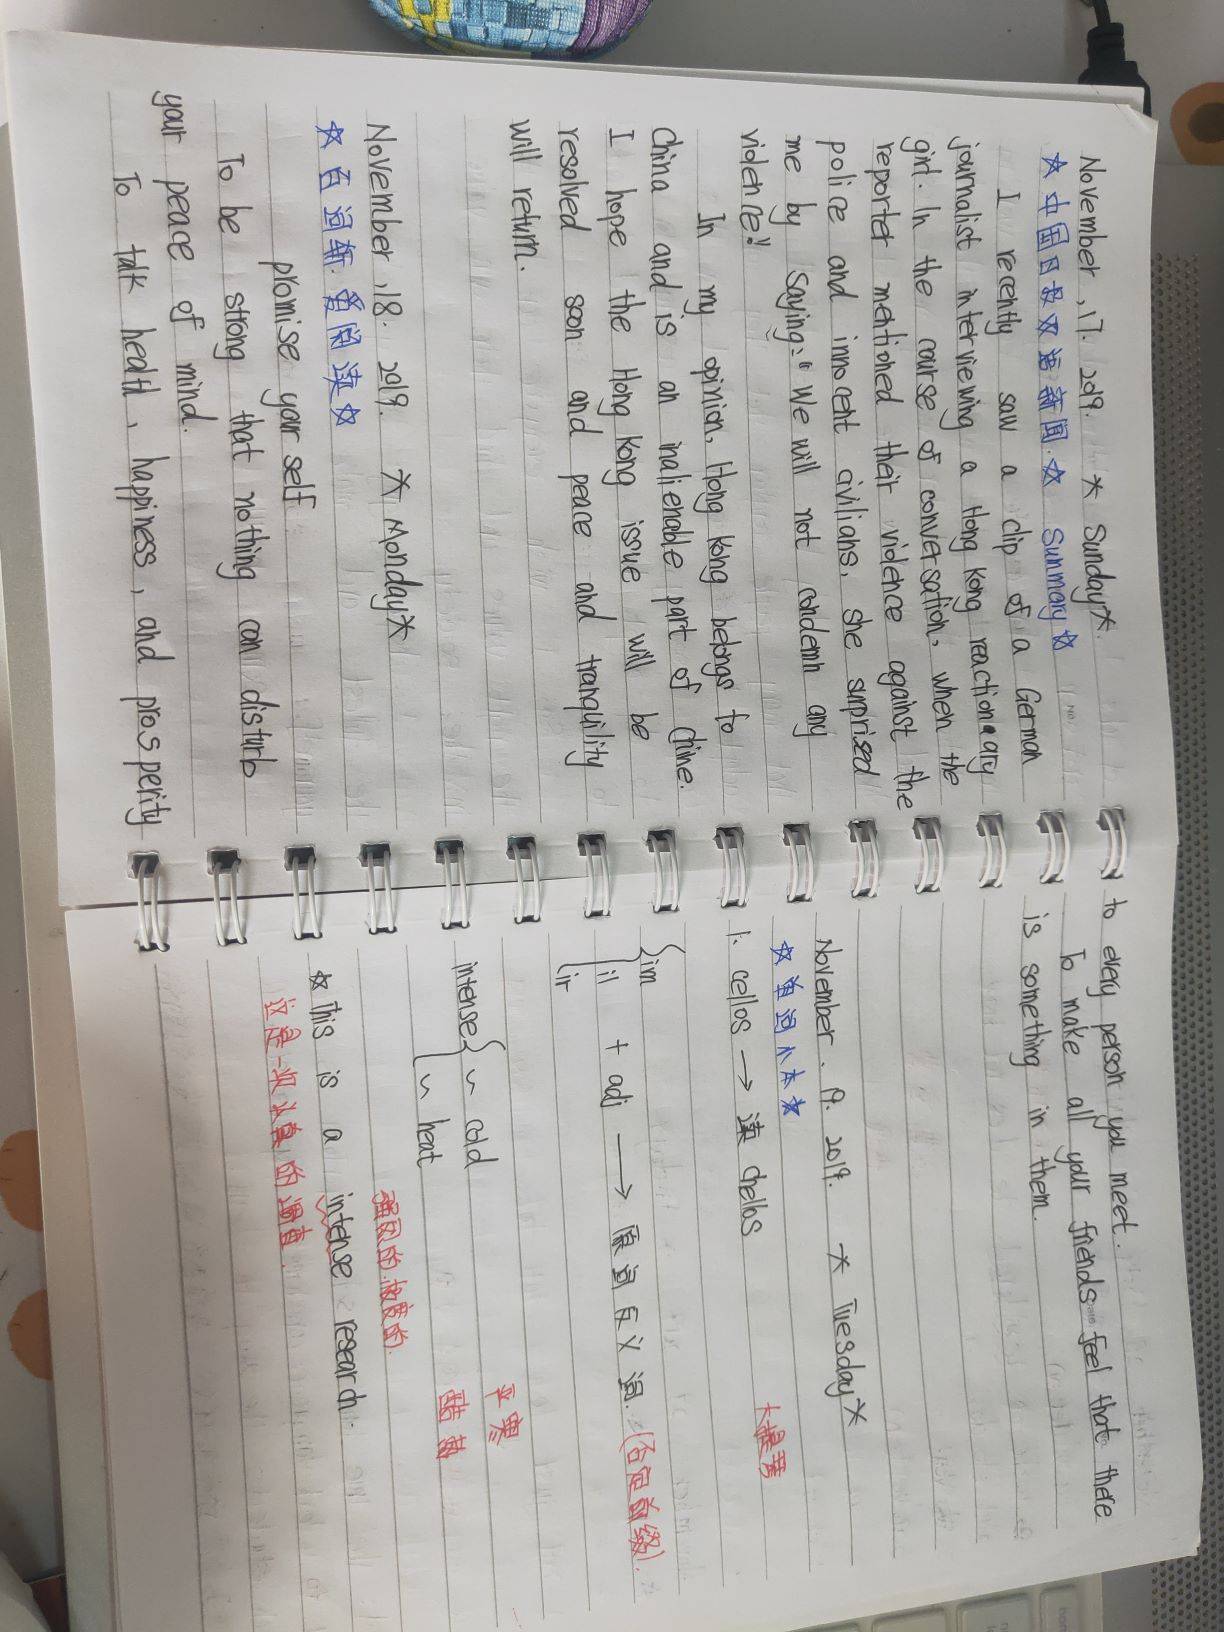 November, 17. 2019. * Sunday*.
☆ 中国日报双语新闻.☆ Summary☆
I recently saw a clip of a German
journalist interviewing a Hong Kong reactionary
girl. In the course of conversation, when the
reporter mentioned their violence against the
police and innocent civilians, she surprised
me by saying: "We will not condemn any
violence!"
In my opinion, Hong Kong belongs to
China and is an inalienable part of Chine.
I hope the Hong Kong issue will be
resolved soon and peace and tranquility
will return.
November, 18. 2019. * Monday*
☆ 百词斩.爱阅读☆
promise yourself
To be strong that nothing can disturb
your peace of mind.
To talk health, happiness, and prosperity
to every person you meet.
To make all your friends feel that there
is something in them.
November. 19. 2019. * Tuesday*
☆ 单词小本☆
大提琴
1. cellos → 读 chellos
im
il + adj → 原词反义词. (否定前缀).
ir
intense { ~ cold 平寒
~ heat 酷热
强烈的.极度的.
☆ This is a intense research.
这是一次认真的调查.